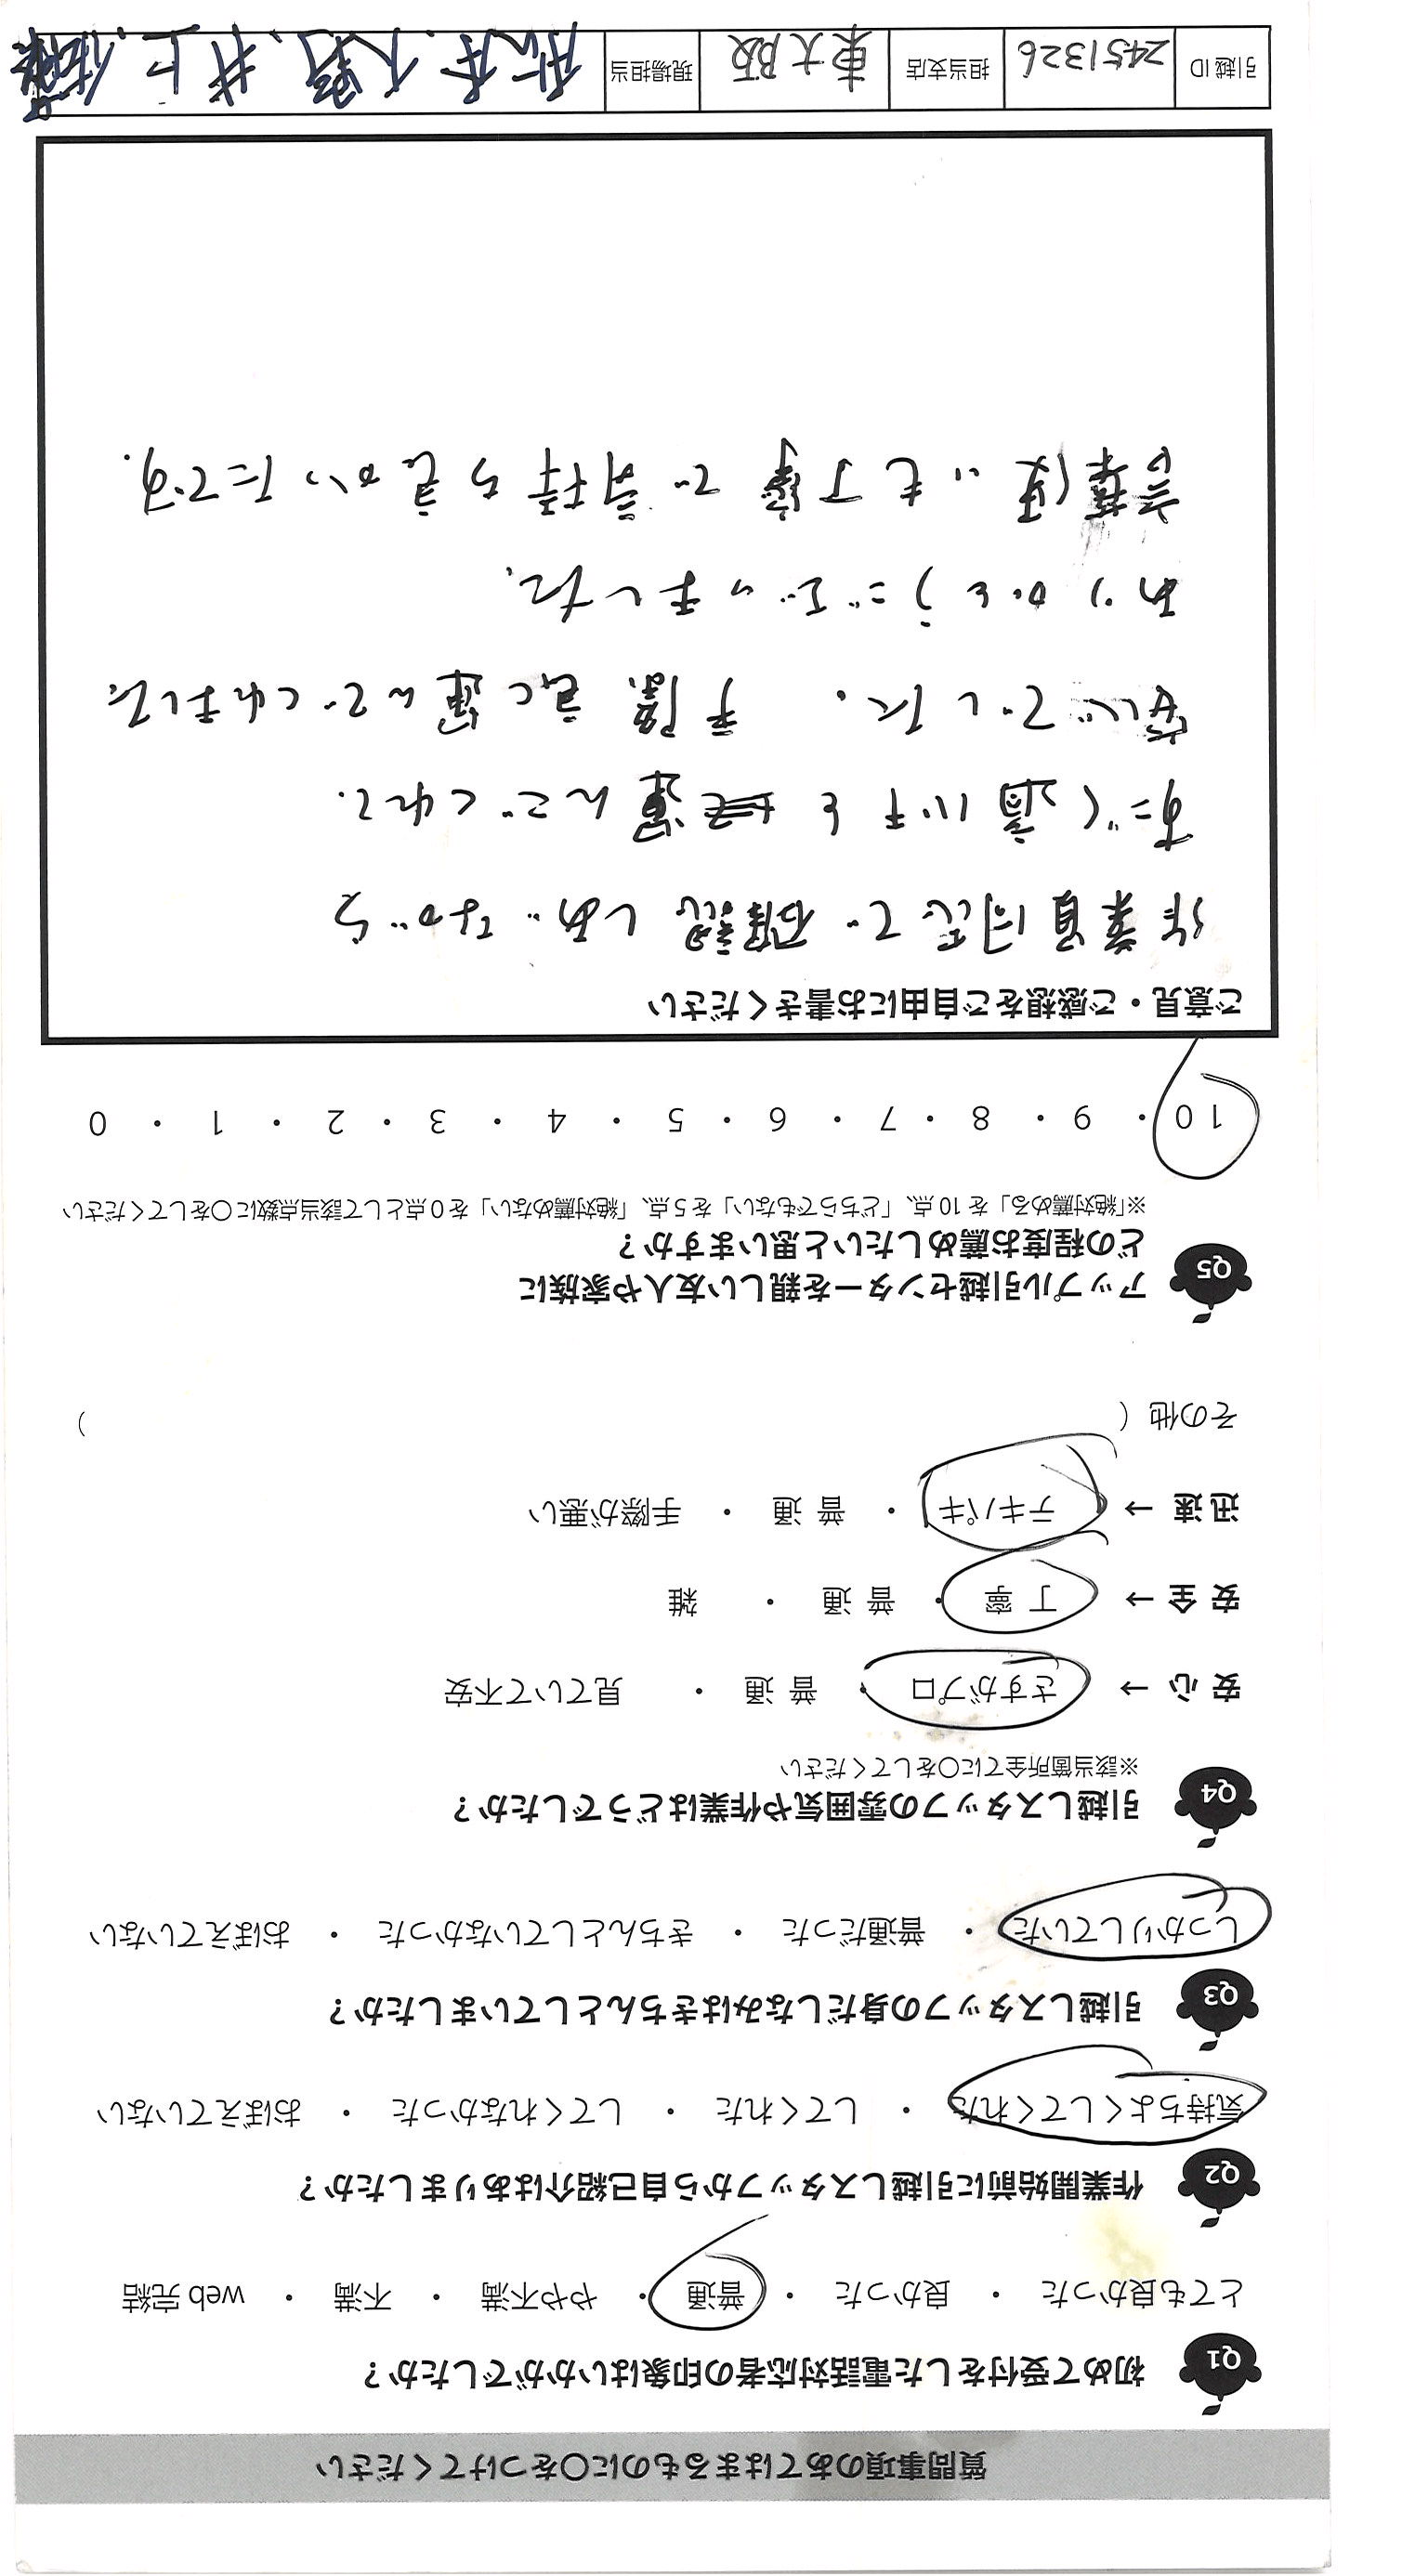 質問事項のあてはまるものに〇をつけてください
Q1 初めて受付をした電話対応者の印象はいかがでしたか？
とても良かった ・ 良かった ・ 普通 ・ やや不満 ・ 不満 ・ web 完結
Q2 作業開始前に引越しスタッフから自己紹介はありましたか？
気持ちよくしてくれた ・ してくれた ・ してくれなかった ・ おぼえていない
Q3 引越しスタッフの身だしなみはきちんとしていましたか？
しっかりしていた ・ 普通だった ・ きちんとしていなかった ・ おぼえていない
Q4 引越しスタッフの雰囲気や作業はどうでしたか？
※該当箇所全てに〇をしてください
安心 → さすがプロ ・ 普通 ・ 見ていて不安
安全 → 丁寧 ・ 普通 ・ 雑
迅速 → テキパキ ・ 普通 ・ 手際が悪い
その他（ ）
Q5 アップル引越センターを親しい友人や家族に
どの程度お薦めしたいと思いますか？
※「絶対薦める」を 10 点、「どちらでもない」を 5 点、「絶対薦めない」を 0 点として該当点数に〇をしてください
10 ・ 9 ・ 8 ・ 7 ・ 6 ・ 5 ・ 4 ・ 3 ・ 2 ・ 1 ・ 0
ご意見・ご感想をご自由にお書きください
作業員同志で確認しあいながら
すごく適切に 運んでくれて、
安心でした。 手際良く運んでくれました
ありがとうございました。
言葉使いも丁寧で気持ち良かったです。
引越 ID 2451326 担当支店 東大阪 現場担当 大野、井上、佐藤